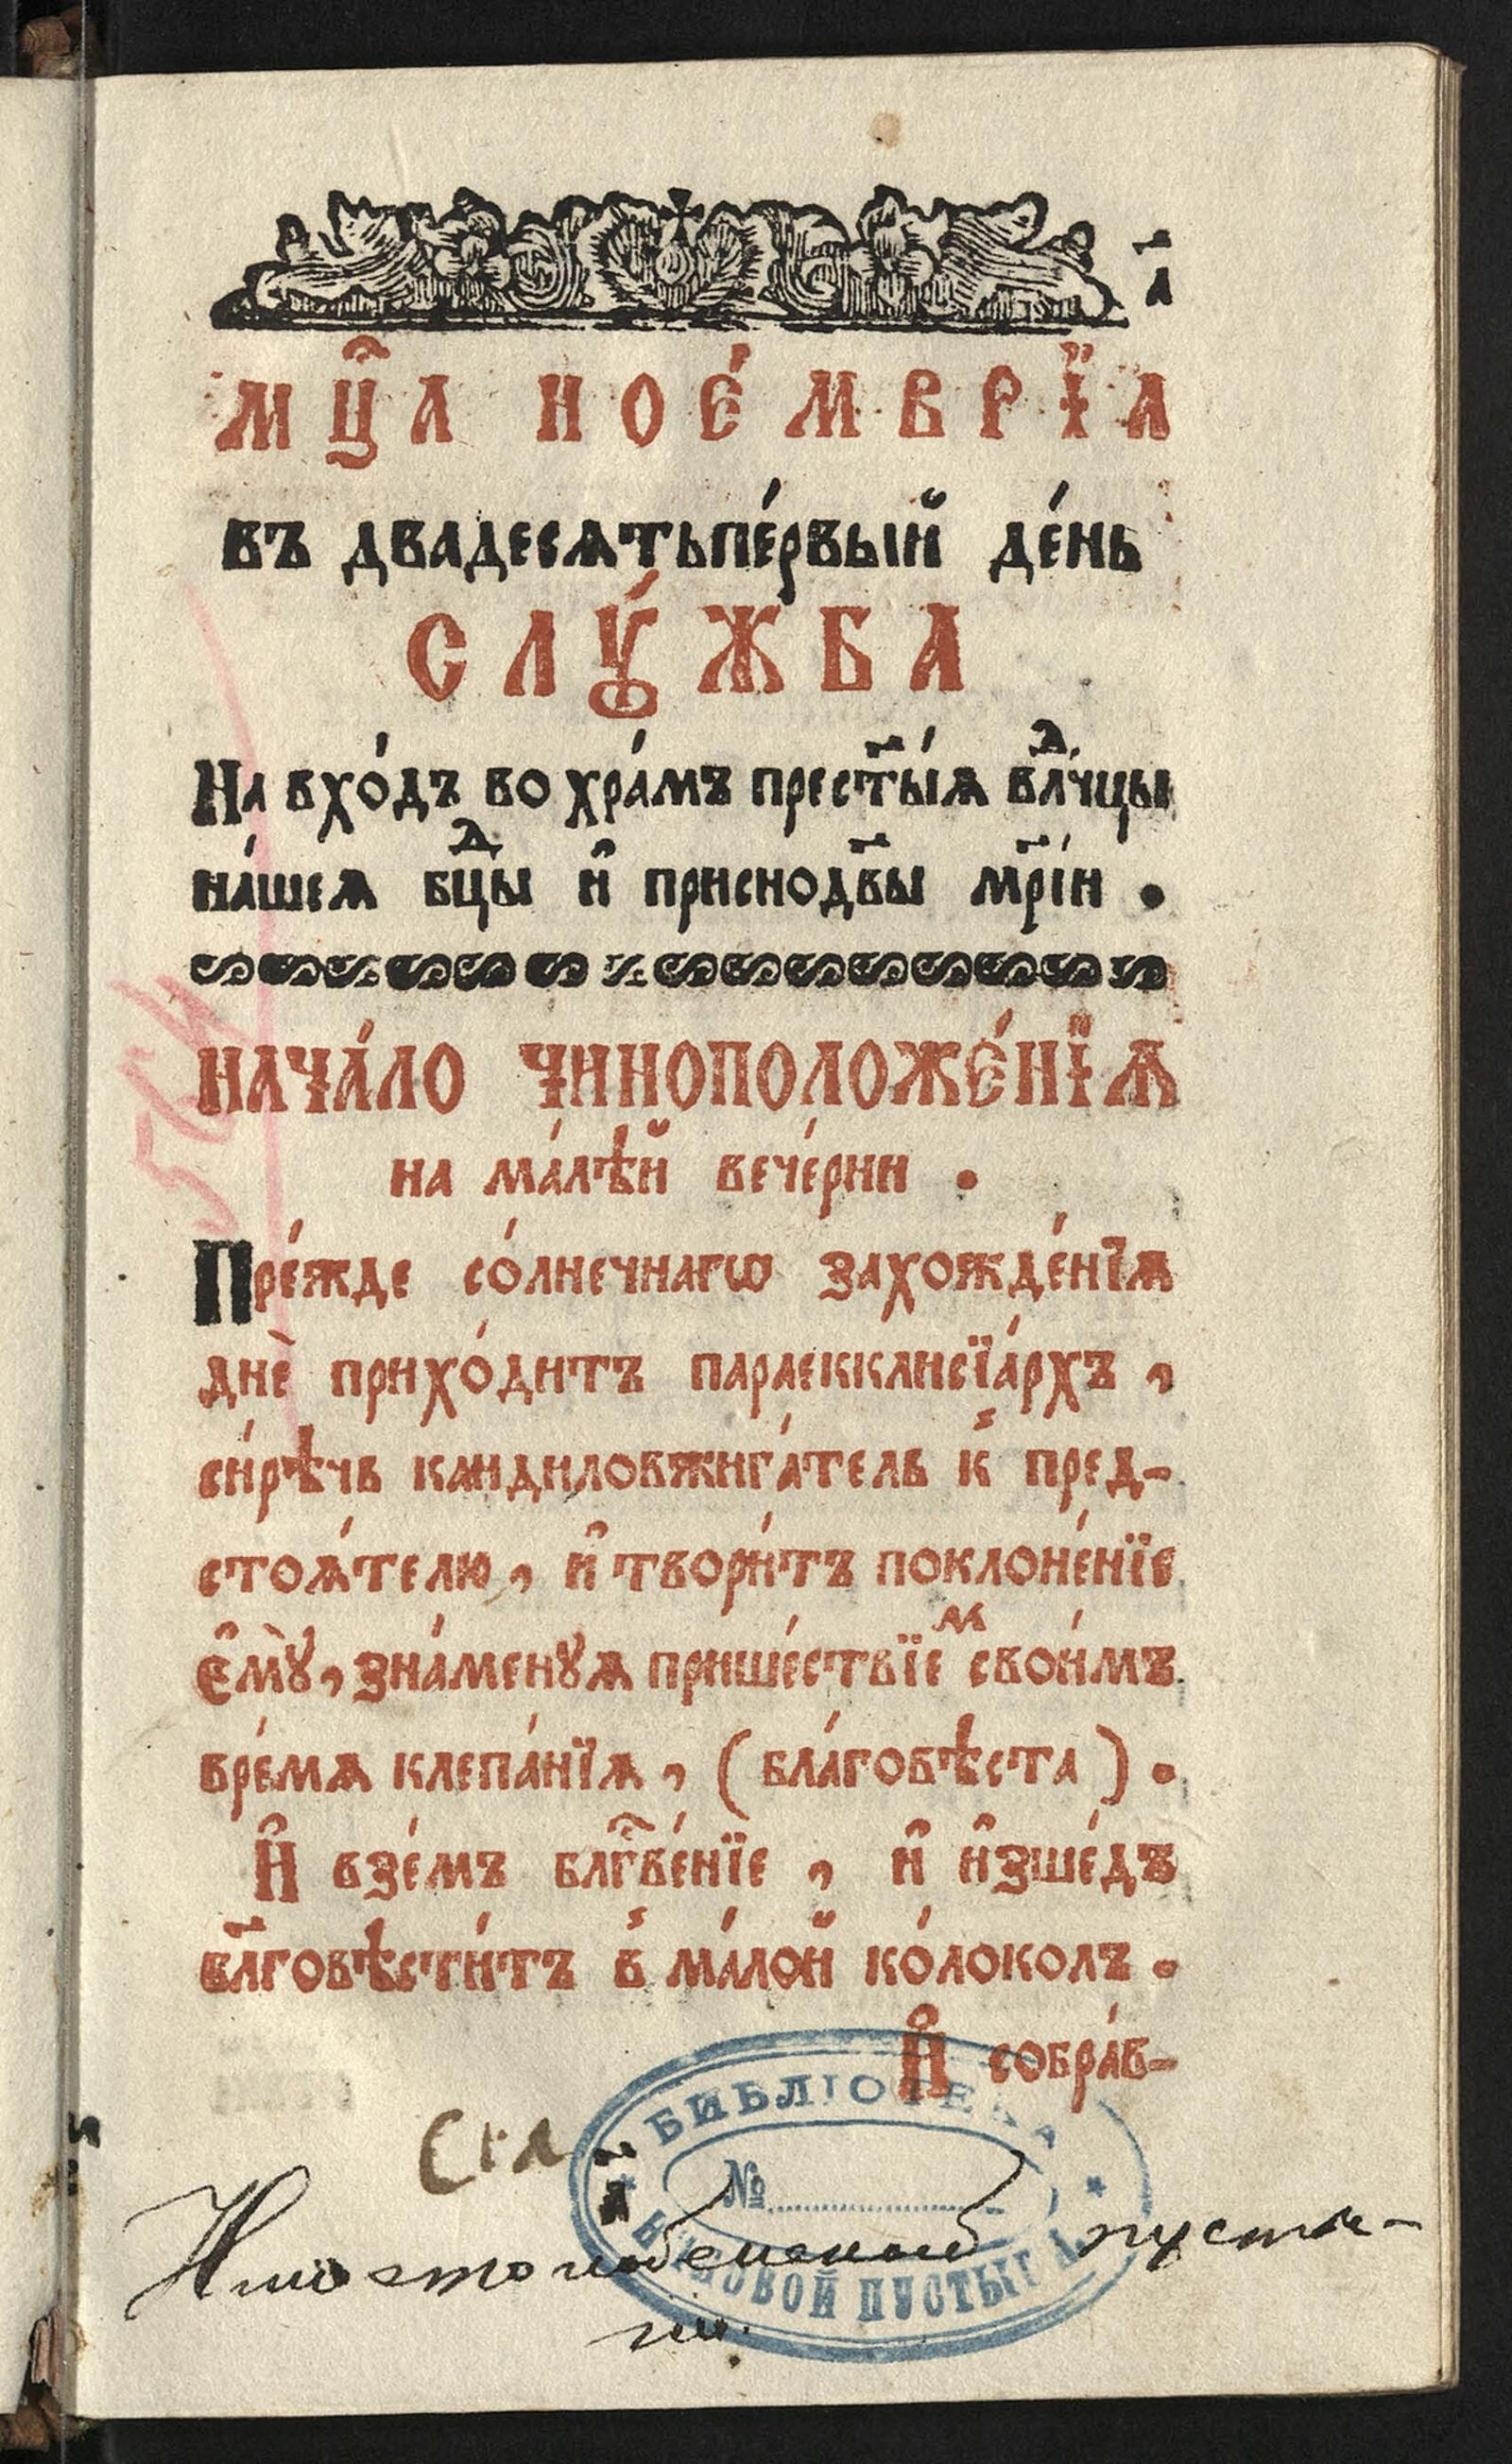 ҃а
Мц҃а ное́мврїа
въ двадесѧтьпе́рвый де́нь
Слꙋ́жба
На вхо́дъ во хра́мъ прест҃ы́ѧ вⷣлчцы
на́шеѧ бⷣцы и҆ приснодв҃ы мр҃і́и .
Нача́ло чиноположе́нїѧ
на ма́лѣй вече́рни .
Пре́жде со́лнечнагѡ захожде́нїѧ
днѐ прихо́дитъ параекклисїа́рхъ ,
си́рѣчь кандиловжига́тель к̾ пред-
стоѧ́телю , и҆ твори́тъ поклоне́нїе
є҆мꙋ̀ , зна́менꙋѧ прише́ствїеⷨ свои́мъ
вре́мѧ клепа́нїѧ , ( бла́говѣста ) .
И҆ взе́мъ блг҃ве́нїе , и҆ и҆зше́дъ
бл҃говѣсти́тъ в̾ ма́лой ко́локолъ .
И҆ собра́в-
БИБЛІОТЕКА
№
ПУСТЫНИ
пусты-
ни.